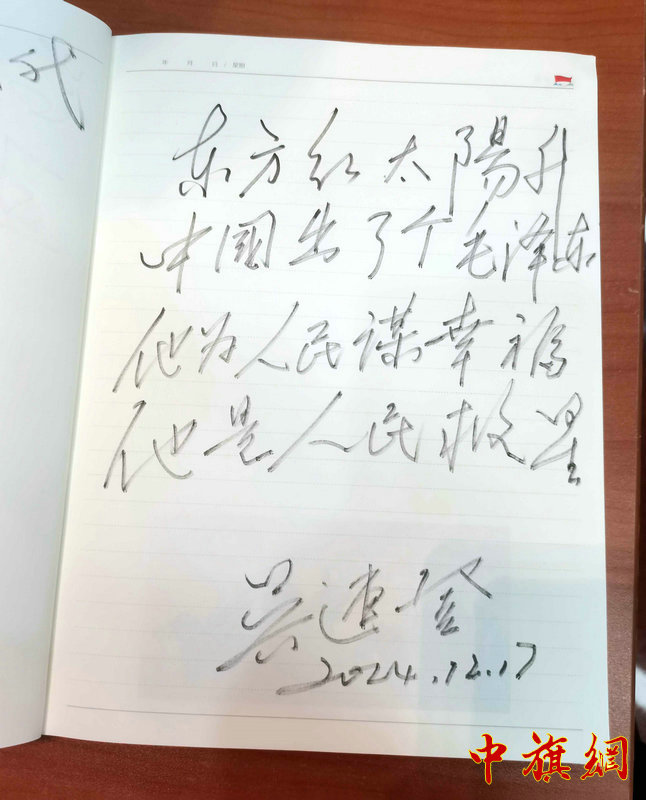 年 月 日 / 星期
东方红太陽升
中國出了个毛泽东
他为人民谋幸福
他是人民救星
吴连登
2024.12.17
中旗網